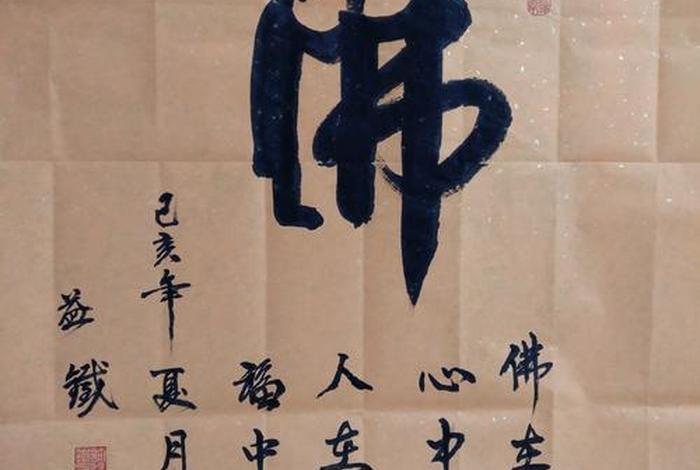 佛
佛在
心中
人在
福中
己亥年夏月
益鐵